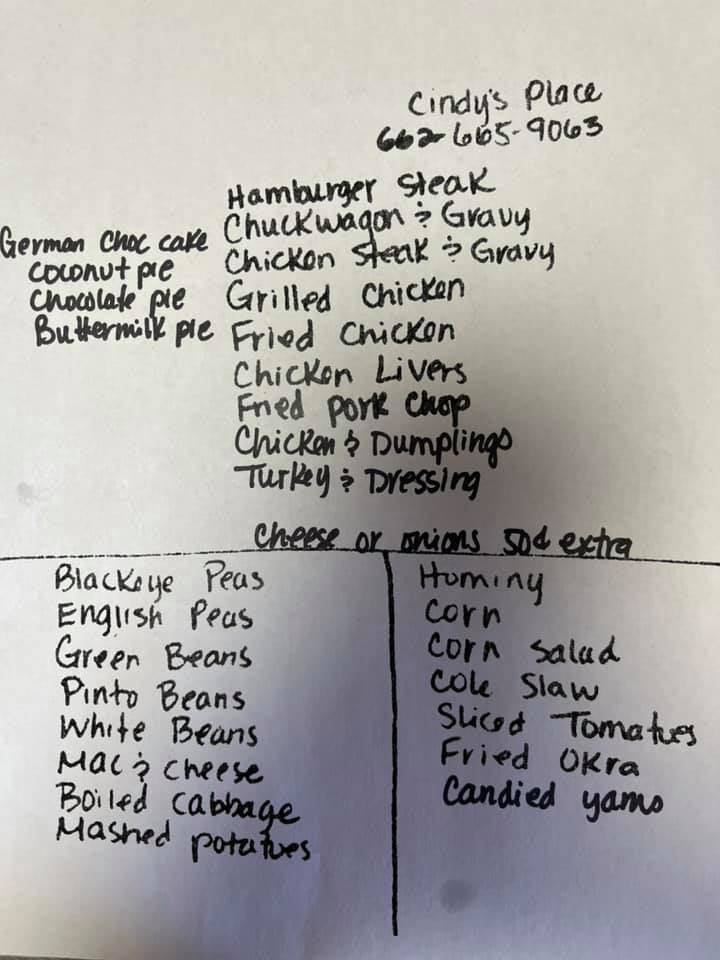 Cindy's Place
662-665-9063
Hamburger Steak
Chuckwagon & Gravy
Chicken Steak & Gravy
Grilled Chicken
Fried Chicken
Chicken Livers
Fried Pork Chop
Chicken & Dumplings
Turkey & Dressing
German Choc cake
Coconut pie
Chocolate pie
Buttermilk pie
Cheese or onions 50¢ extra
Blackeye Peas
English Peas
Green Beans
Pinto Beans
White Beans
Mac & cheese
Boiled cabbage
Mashed potatoes
Hominy
Corn
Corn Salad
Cole Slaw
Sliced Tomatoes
Fried Okra
Candied yams